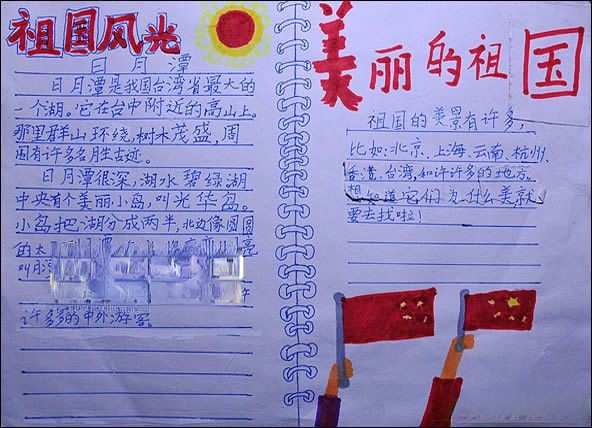 祖国风光
日月潭
日月潭是我国台湾省最大的
一个湖。它在台中附近的高山上。
那里群山环绕，树木茂盛，周
围有许多名胜古迹。
日月潭很深，湖水碧绿湖
中央有个美丽小岛，叫光华岛。
小岛把湖分成两半，北边像圆圆
的太
亮
叫月
许多的中外游客。
美丽的祖国
祖国的美景有许多，
比如：北京、上海、云南、杭州、
香港、台湾，和许许多的地方。
想知道它们为什么美就
要去找啦！